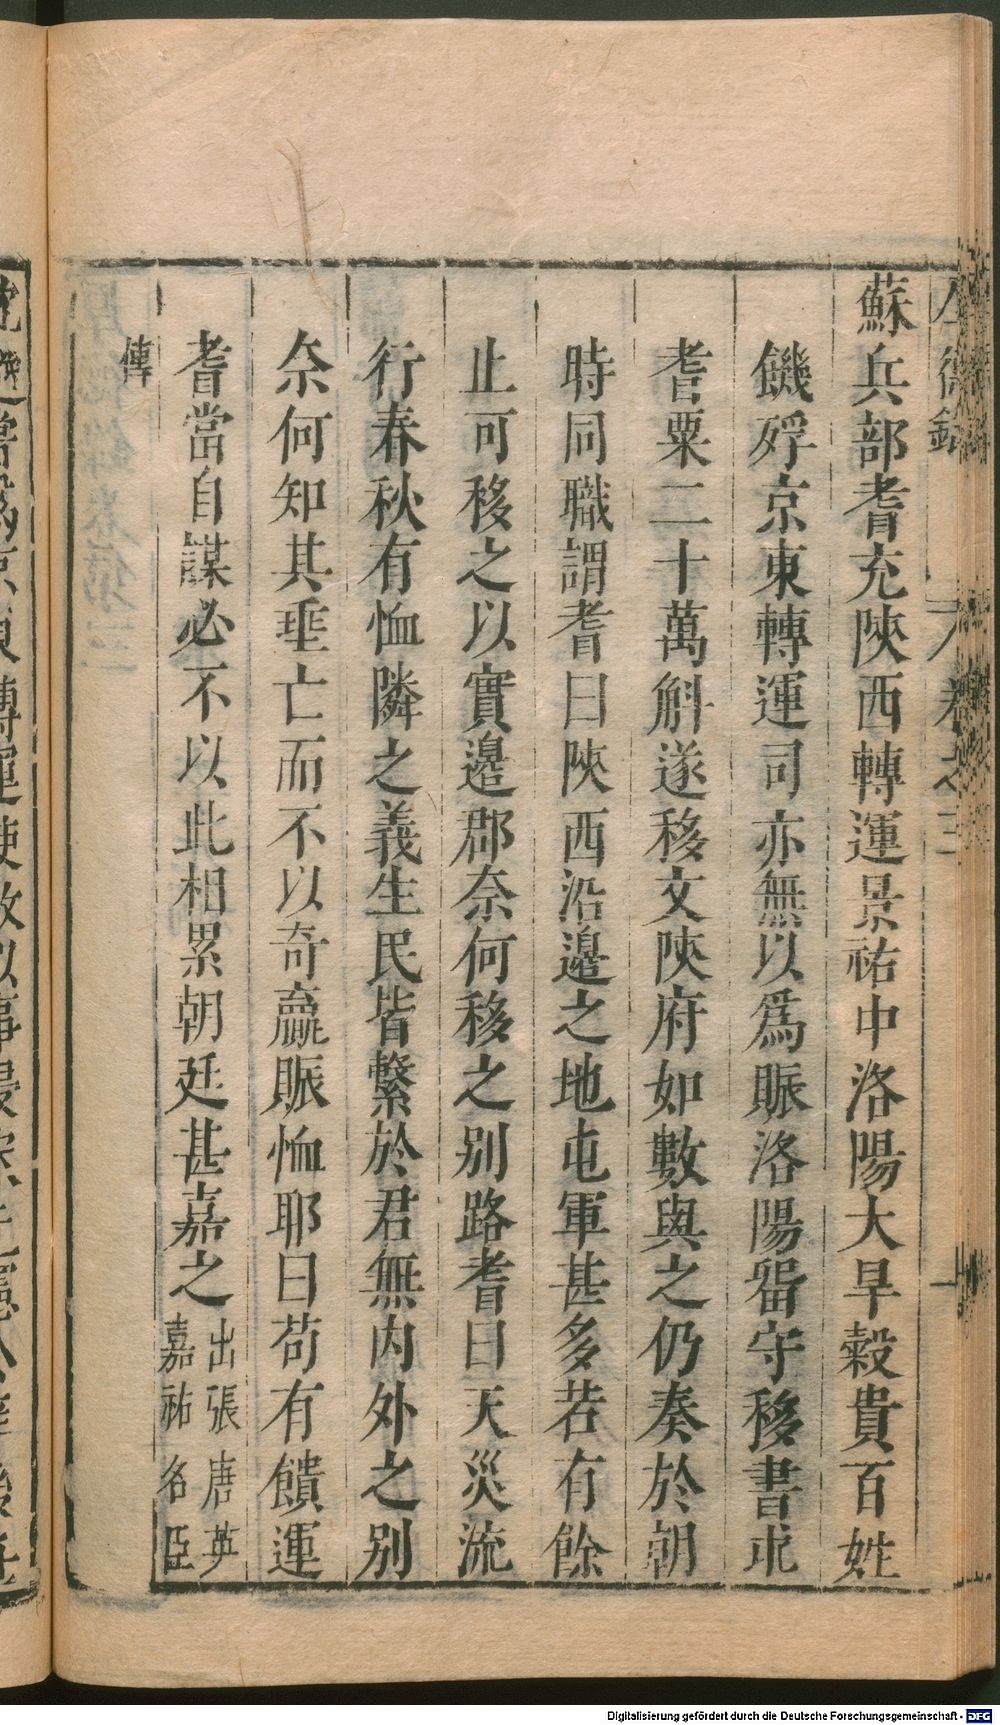 蘇兵部耆充陜西轉運景祐中洛陽大旱穀貴百姓
饑殍京東轉運司亦無以爲賑洛陽留守移書求
耆粟二十萬斛遂移文陜府如數與之仍奏於朝
時同職謂耆曰陜西沿邉之地屯軍甚多若有餘
止可移之以實邉郡奈何移之别路耆曰天災流
行春秋有恤隣之義生民皆繫於君無内外之别
奈何知其垂亡而不以奇贏賑恤耶曰苟有饋運
耆當自謀必不以此相累朝廷甚嘉之出張唐英
嘉祐名臣
傳
卷之三
Digitalisierung gefördert durch die Deutsche Forschungsgemeinschaft - DFG